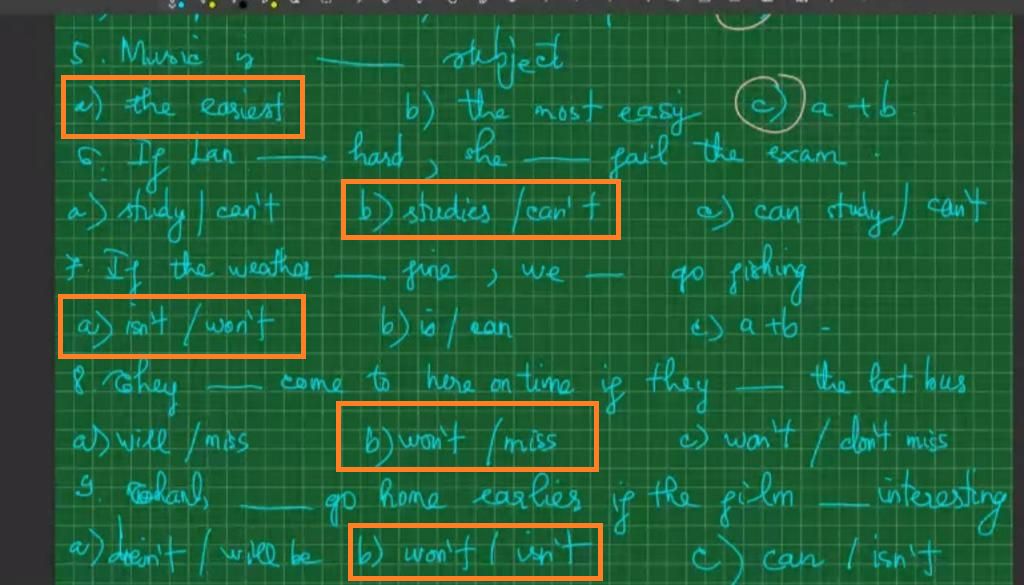 5. Music is ______ subject
a) the easiest b) the most easy c) a + b
6. If Lan ____ hard, she ____ fail the exam.
a) study / can't b) studies / can't c) can study / can't
7. If the weather ____ fine, we ____ go fishing
a) isn't / won't b) is / can c) a + b
8. They ____ come to here on time if they ____ the last bus
a) will / miss b) won't / miss c) won't / don't miss
9. ____ go home earlier if the film ____ interesting
a) / will be b) won't / isn't c) can / isn't